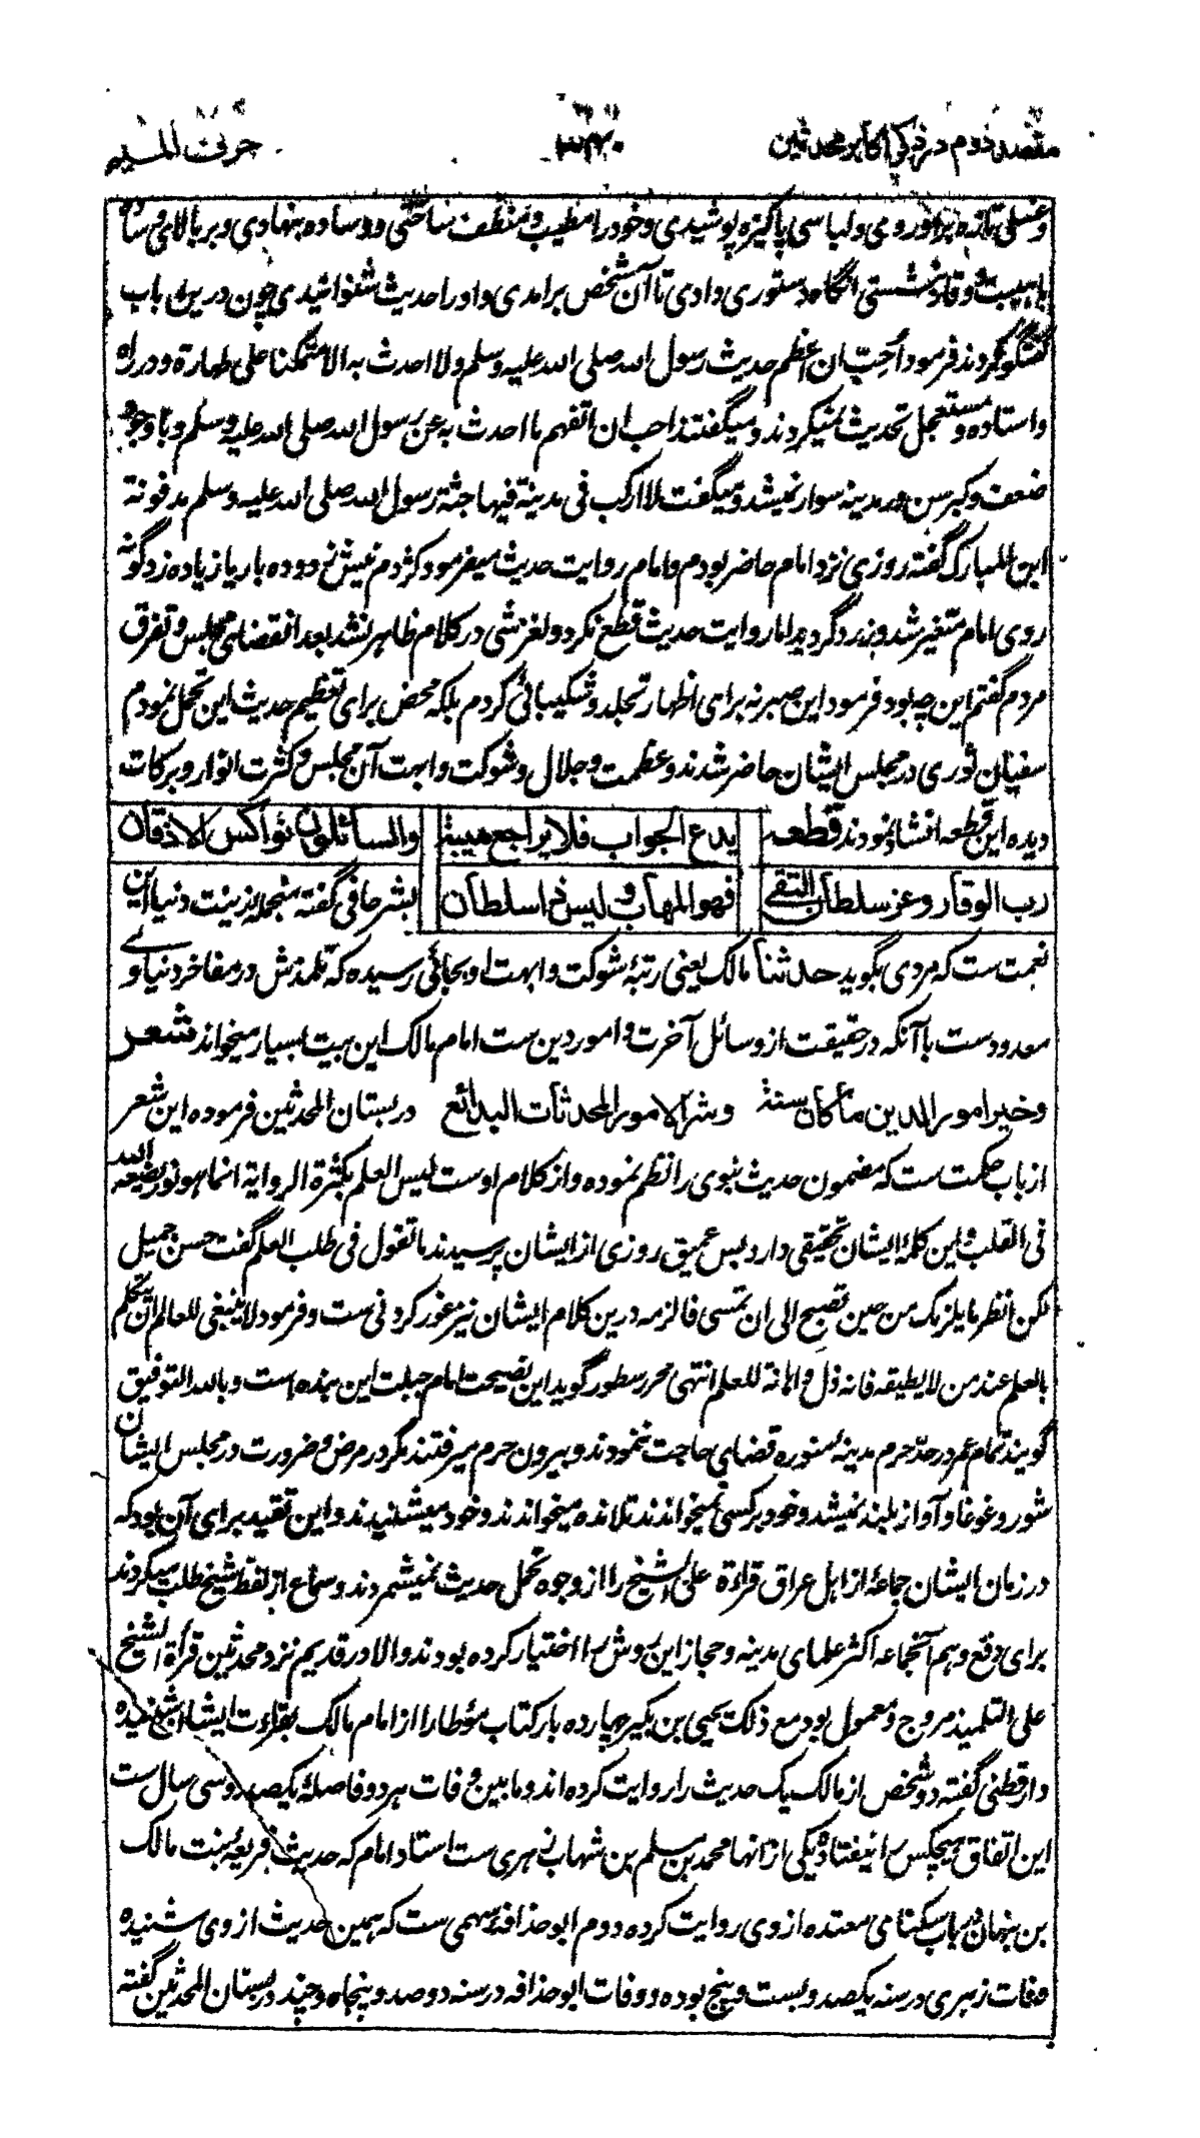 مقصد دوم در ذکر اکابر محدثین
۳۲۰
حرف المیم
و غسلی تازه برآوردی و لباسی پاکیزه پوشیدی و خود را مطیب و منظف ساختی و وساده بنهادی و بر بالای وساده
باهیبت و وقار نشستی انگاه دستوری دادی تا آن شخص برامدی و اورا حدیث شنوانیدی چون درین باب
گفتگو کردند فرمود احب ان اعظم حدیث رسول الله صلی الله علیه وسلم ولا احدث به الا متمکنا علی طهارة و در راه
و استاده و مستعجل تحدیث نمیکردند و میگفتند احب ان اتفهم ما احدث به عن رسول الله صلی الله علیه وسلم و باوجود
ضعف و کبر سن در مدینه سوار نمیشد و میگفت لا ارکب فی مدینة فیها جثة رسول الله صلی الله علیه وسلم مدفونة
ابن المبارک گفته روزی نزد امام حاضر بودم و امام روایت حدیث میفرمود کژدم نیش زد و ده بار یا زیاده زد گونه
روی امام متغیر شد و زرد گردید اما روایت حدیث قطع نکرد و لغزشی در کلام ظاهر نشد بعد انقضای مجلس و تفرق
مردم گفتم این چه بود فرمود این صبر نه برای اظهار تجلد و شکیبائی کردم بلکه محض برای تعظیم حدیث این تحمل نمودم
سفیان ثوری در مجلس ایشان حاضر شدند و عظمت و جلال و شوکت و ابهت آن مجلس و کثرت انوار و برکات
دیده این قطعه انشاد نمودند قطعه یدع الجواب فلا یراجع هیبة والسائلون نواکس الاذقان
رب الوقار و عز سلطان التقی فهو المهاب و لیس ذا سلطان بشر حافی گفته منجمله زینت دنیا این
نعمت ست که مردی بگوید حدثنا مالک یعنی رتبۀ شوکت و ابهت او بجائی رسیده که تلمذش در مفاخر دنیاوی
معدودست با آنکه در حقیقت از وسائل آخرت و امور دین ست امام مالک این بیت بسیار میخواند شعر
و خیر امور الدین ما کان سنة و شر الامور المحدثات البدائع در بستان المحدثین فرموده این شعر
از باب حکمت ست که مضمون حدیث نبوی را نظم نموده و از کلام اوست لیس العلم بکثرة الروایة انما هو نور یضعه الله
فی القلب و این کلمۀ ایشان تحقیقی دارد بس عمیق روزی از ایشان پرسیدند ما تقول فی طلب العلم گفت حسن جمیل
لکن انظر ما یلزمک من حین تصبح الی ان تمسی فالزمه درین کلام ایشان نیز غور کردنی ست و فرمود لا ینبغی للعالم ان یتکلم
بالعلم عند من لا یطیقه فانه ذل و اهانة للعلم انتهی محرر سطور گوید این نصیحت امام جبلت این بنده است و بالله التوفیق
گویند تمام عمر در حد حرم مدینۀ منوره قضای حاجت ننمودند و بیرون حرم میرفتند مگر در مرض و ضرورت در مجلس ایشان
شور و غوغا و آواز بلند نمیشد و خود بر کسی نمیخواندند تلامذه میخواندند و خود میشنیدند و این تقید برای آن بود که
در زمان ایشان جماعۀ از اهل عراق قراءة علی الشیخ را از وجوه تحمل حدیث نمیشمردند و سماع از لفظ شیخ طلب میکردند
برای دفع وهم آنجماعه اکثر علمای مدینه و حجاز این روش را اختیار کرده بودند والا در قدیم نزد محدثین قرأة الشیخ
علی التلمیذ مروج و معمول بود مع ذلک یحیی بن بکیر چهارده بار کتاب مؤطا را از امام مالک بقراءت ایشان شنیده
دارقطنی گفته دو شخص از مالک یک حدیث را روایت کرده اند و ما بین وفات هر دو فاصلۀ یکصد و سی سال ست
این اتفاق هیچکس را نیفتاده یکی از انها محمد بن مسلم بن شهاب زهری ست استاد امام که حدیث فریعه بنت مالک
بن سنان در باب سکنای معتده از وی روایت کرده دوم ابو حذافۀ سهمی ست که همین حدیث از وی شنیده
وفات زهری در سنه یکصد و بست و پنج بوده و وفات ابو حذافه در سنه دو صد و پنجاه و چند در بستان المحدثین گفته